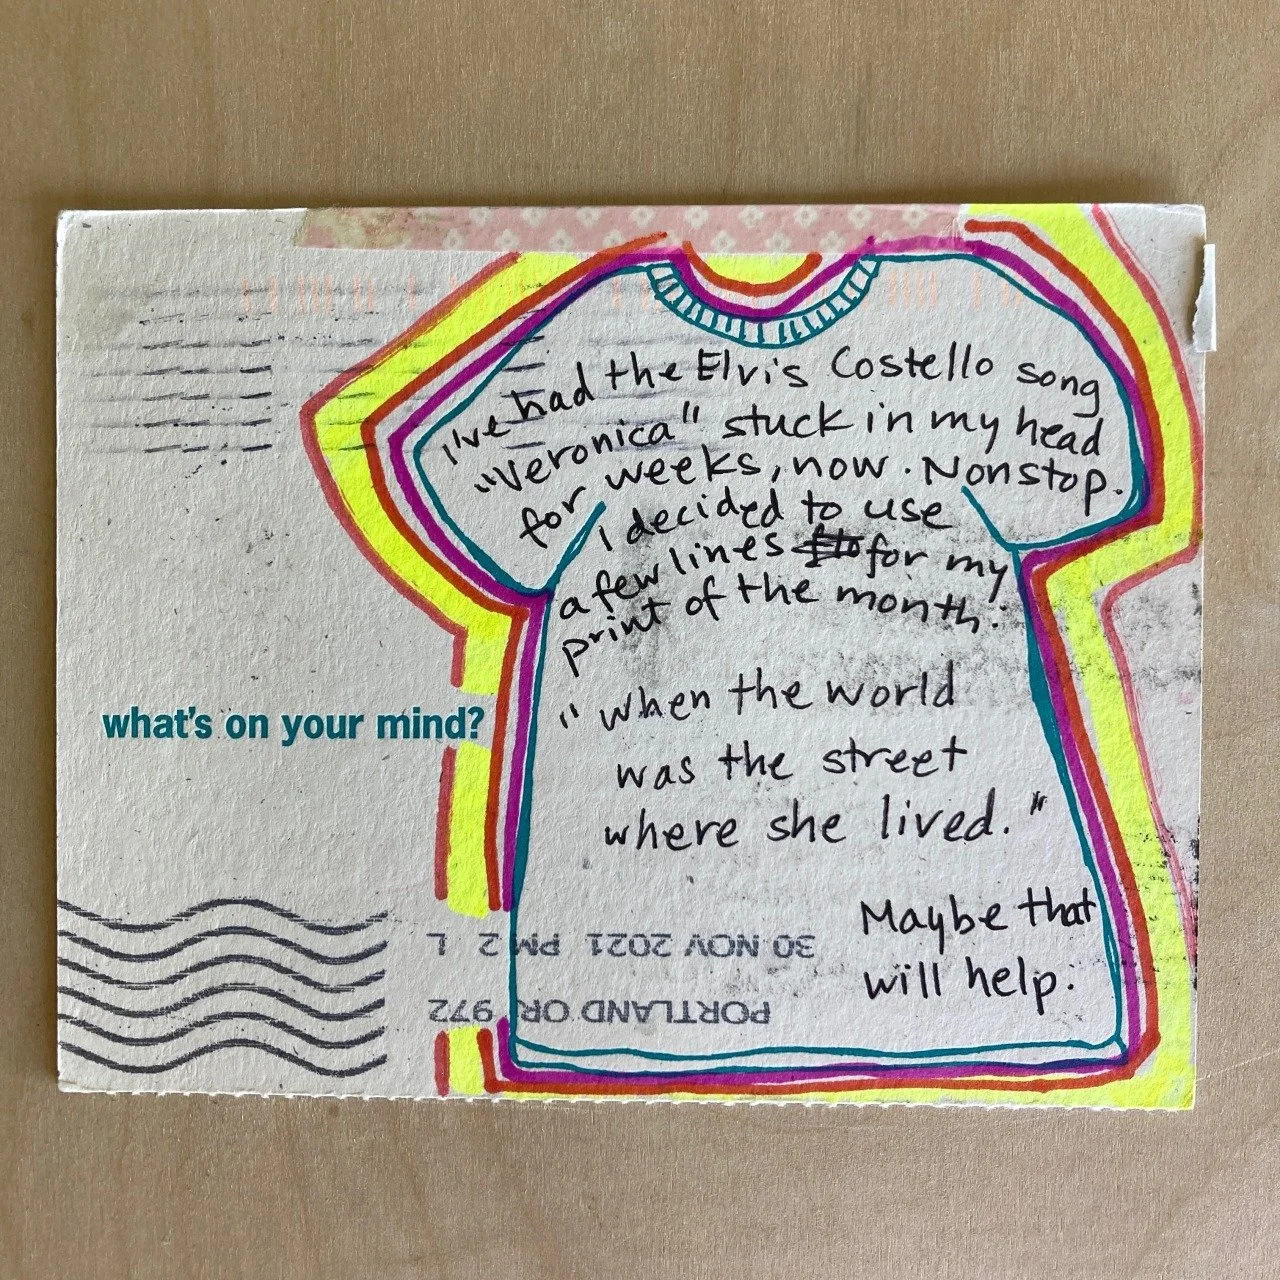 I've had the Elvis Costello song
"Veronica" stuck in my head
for weeks, now. Nonstop.
I decided to use
a few lines for my
print of the month:
"when the world
was the street
where she lived."
Maybe that
will help.
what's on your mind?
PORTLAND OR 972
30 NOV 2021 PM 2 L